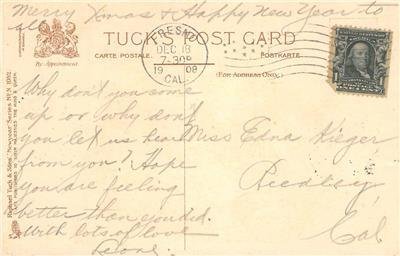 Merry Xmas & Happy New Year to
all
TUCK'S POST CARD
CARTE POSTALE.
POSTKARTE.
(FOR ADDRESS ONLY.)
By Appointment
FRESNO
DEC 18
7-30P
1908
CAL.
1
Why don't you come
up or why dont
you let us hear
from you. Hope
you are feeling
better than you did.
With lots of love
Leone.
Miss Edna Kieger
Reedley
Cal
Raphael Tuck & Sons' "Newyear" Series
ART PUBLISHERS TO THEIR MAJESTIES THE KING & QUEEN.